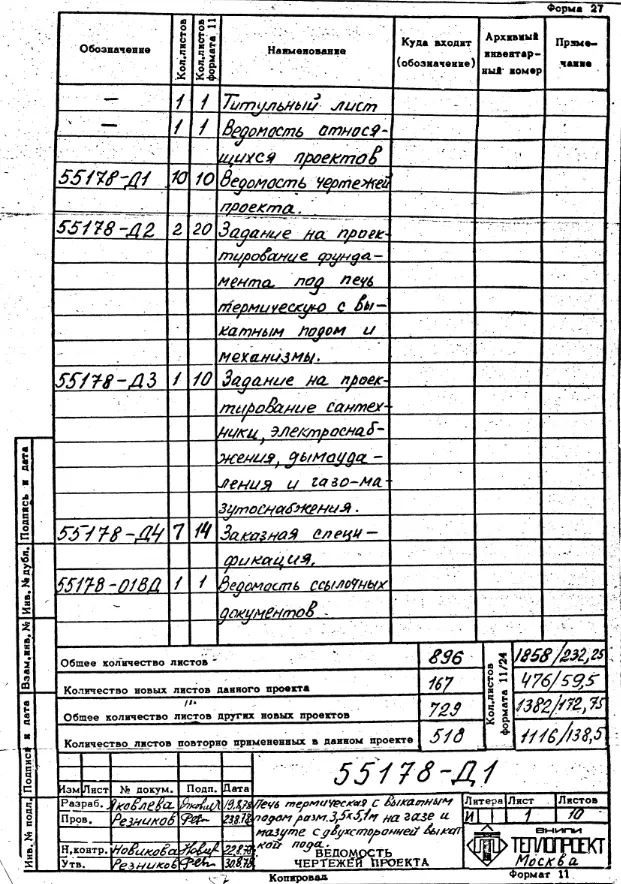 Форма 27
Обозначение Кол.листов Кол.листов формата 11 Наименование Куда входит (обозначение) Архивный инвентарный номер Примечание
— 1 1 Титульный лист
— 1 1 Ведомость относя-
щихся проектов
55178-Д1 10 10 Ведомость чертежей
проекта.
55178-Д2 2 20 Задание на проек-
тирование фунда-
мента под печь
термическую с вы-
катным подом и
механизмы.
55178-Д3 1 10 Задание на проек-
тирование сантех-
ники, электроснаб-
жения, дымоуда-
ления и газо-ма-
зутоснабжения.
55178-Д4 7 14 Заказная специ-
фикация.
55178-01ВД 1 1 Ведомость ссылочных
документов.
Общее количество листов 896 Кол.листов формата 11/24 1858/232,25
Количество новых листов данного проекта 167 476/59,5
Общее количество листов других новых проектов 729 1382/172,75
Количество листов повторно примененных в данном проекте 518 1116/138,5
55178-Д1
Изм Лист № докум. Подп. Дата
Разраб. Яковлева
Пров. Резников
Н.контр. Новикова
Утв. Резников
Печь термическая с выкатным
подом разм. 3,5х5,1м на газе и
мазуте с двухсторонней выкат
кой пода.
ВЕДОМОСТЬ
ЧЕРТЕЖЕЙ ПРОЕКТА
Литера Лист Листов
И 1 10
ВНИПИ
ТЕПЛОПРОЕКТ
Москва
Копировал Формат 11
Инв. № подл. Подпись и дата Взам.инв. № Инв. № дубл. Подпись и дата